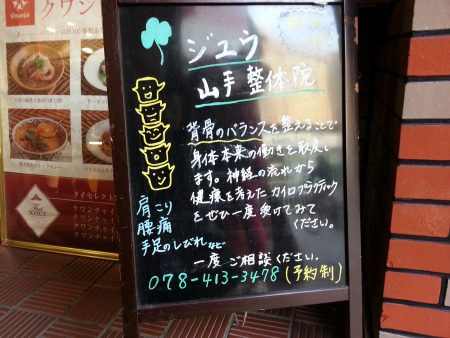 クワンチ
Kwanjai
ジュラ
山手 整体院
背骨のバランスを整えることで
身体本来の働きを取戻し
ます。神経の流れから
健康を考えたカイロプラクティック
をぜひ一度受けてみて
ください。
肩こり
腰痛
手足のしびれ など
一度 ご相談ください。
078-413-3478 (予約制)
タイセレクト
クワンチャイ
クワンチャイ
クワンチャイ